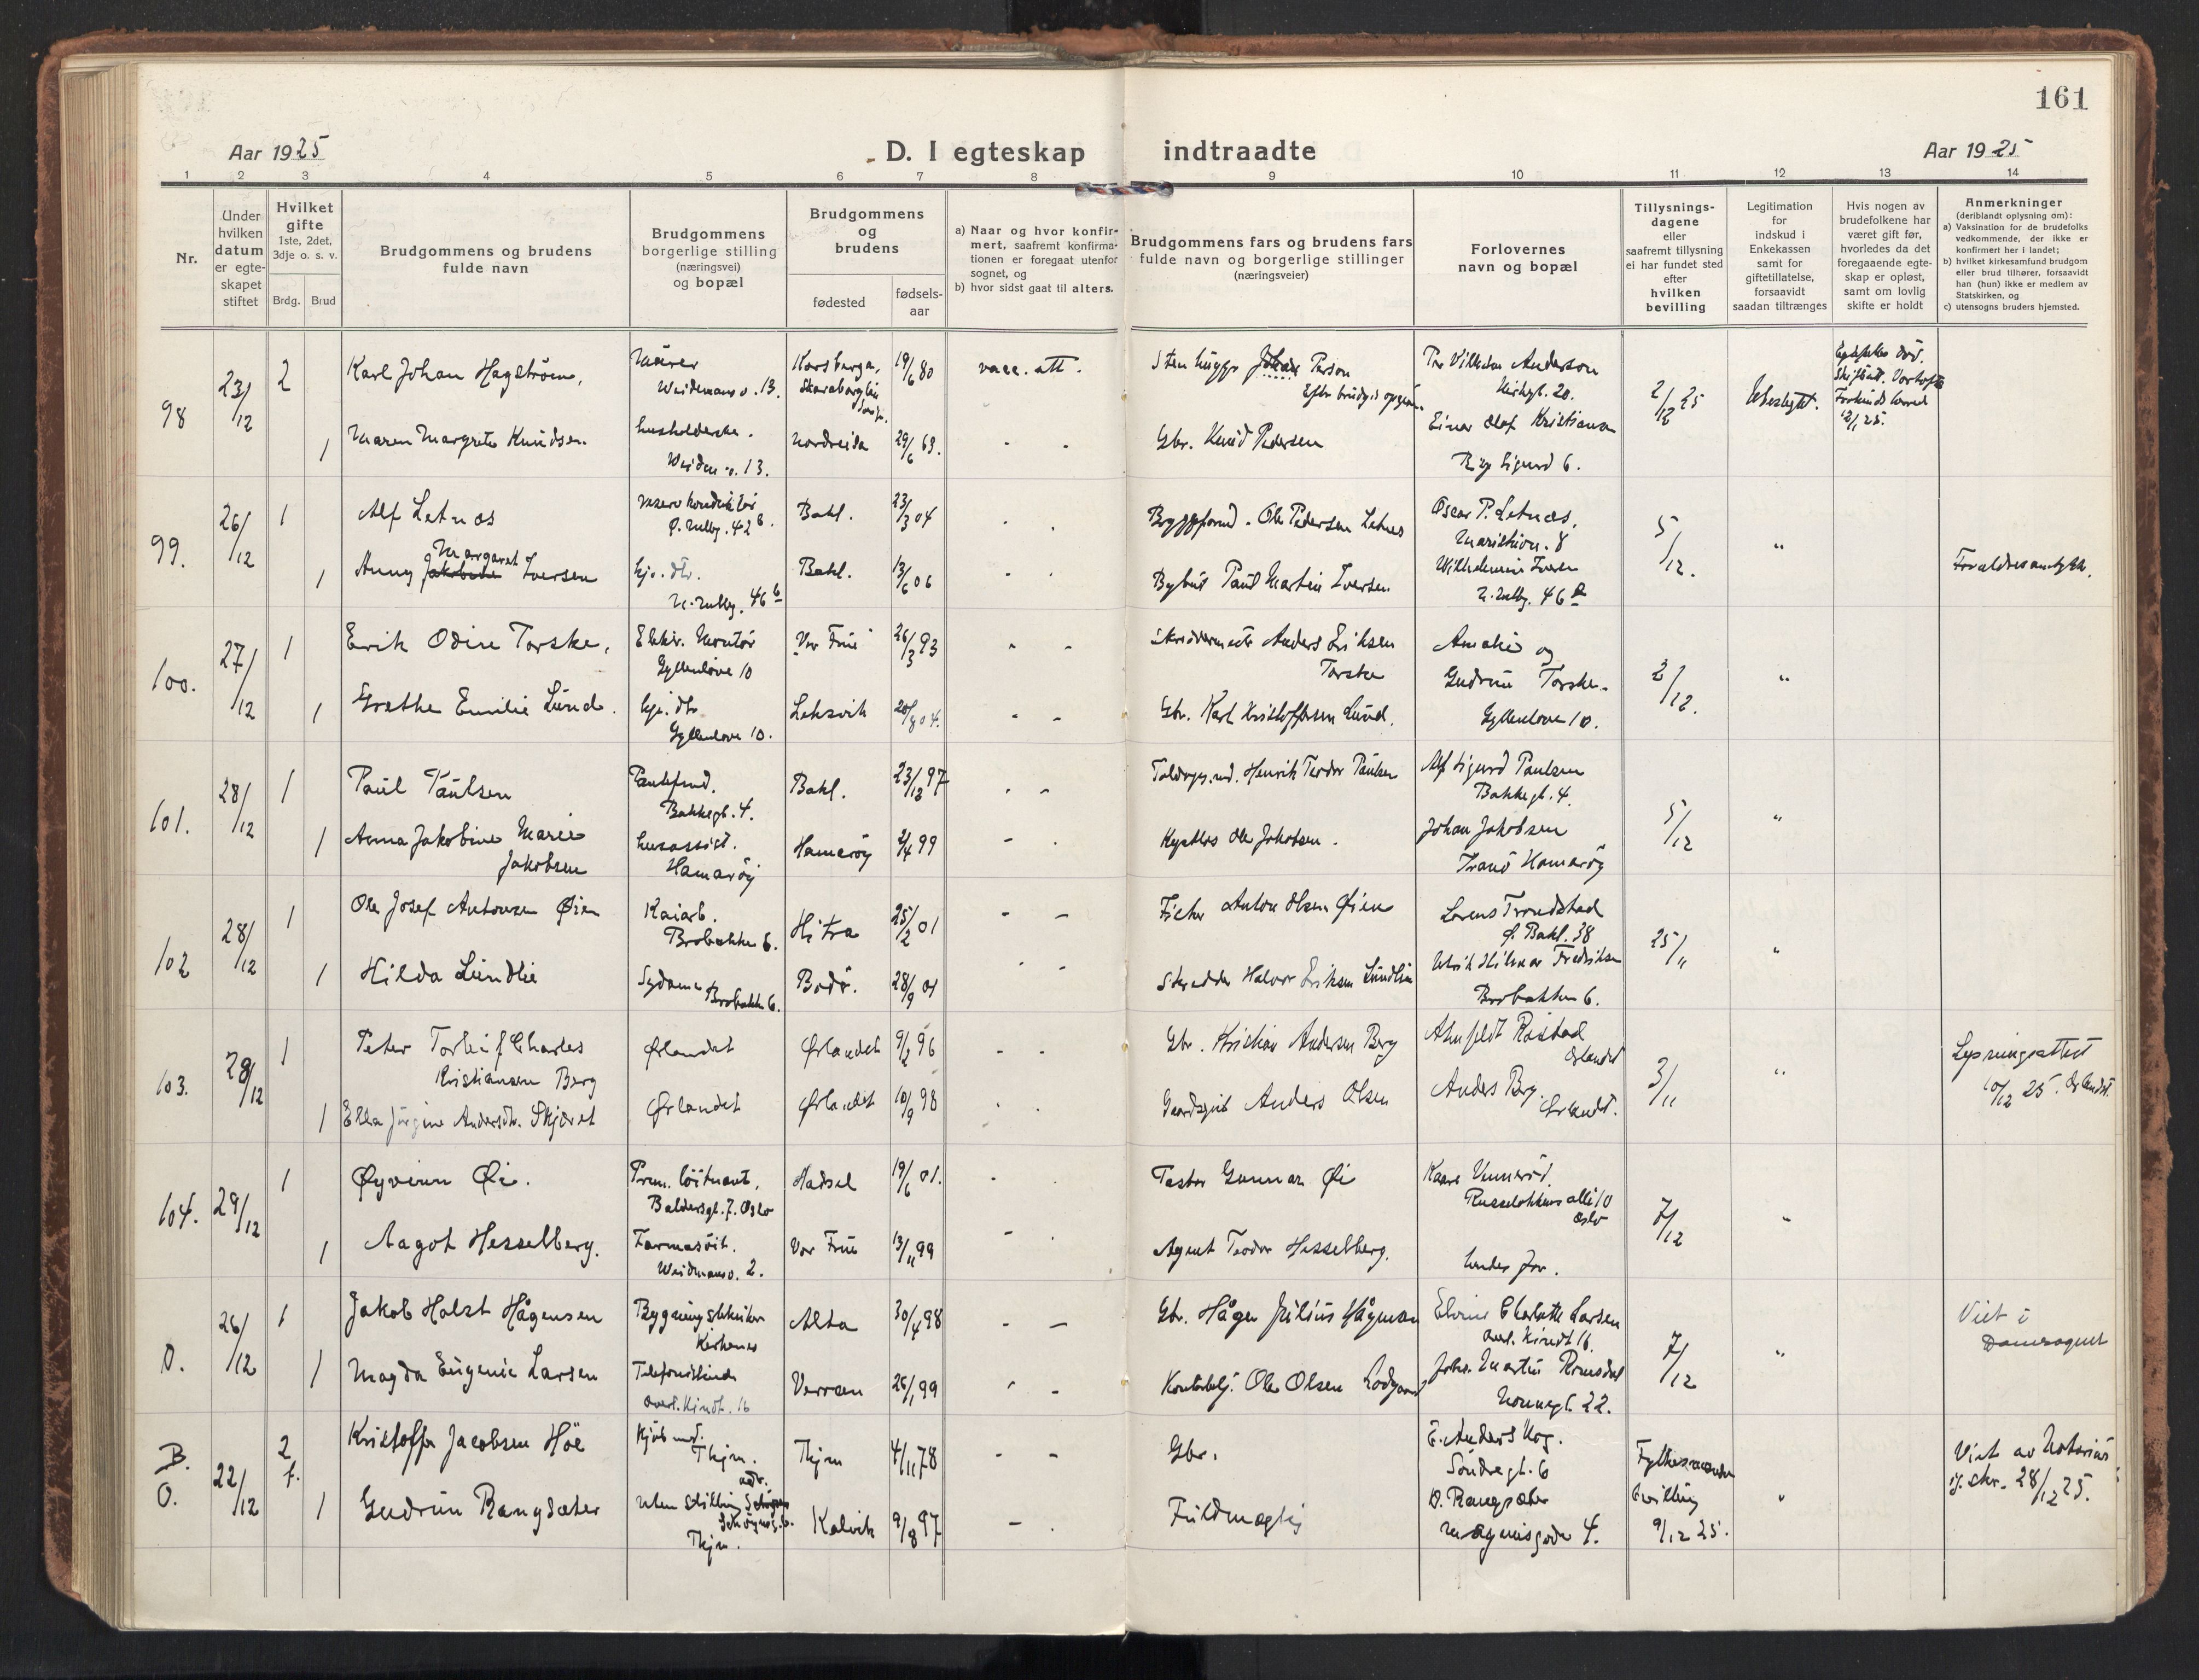 161
Aar 1925
D. I egteskap indtraadte
Aar 1925
1 2 3 4 5 6 7 8 9 10 11 12 13 14
Nr.
Under hvilken datum er egte-skapet stiftet
Hvilket gifte
1ste, 2det, 3dje o. s. v.
Brdg. Brud
Brudgommens og brudens fulde navn
Brudgommens borgerlige stilling (næringsvei) og bopæl
Brudgommens og brudens
fødested
fødsels-aar
a) Naar og hvor konfir-
mert, saafremt konfirma-
tionen er foregaat utenfor
sognet, og
b) hvor sidst gaat til alters.
Brudgommens fars og brudens fars
fulde navn og borgerlige stillinger
(næringsveier)
Forlovernes
navn og bopæl
Tillysnings-
dagene
eller
saafremt tillysning
ei har fundet sted
efter
hvilken
bevilling
Legitimation
for
indskud i
Enkekassen
samt for
giftetillatelse,
forsaavidt
saadan tiltrænges
Hvis nogen av
brudefolkene har
været gift før,
hvorledes da det
foregaaende egte-
skap er opløst,
samt om lovlig
skifte er holdt
Anmerkninger
(deriblandt oplysning om):
a) Vaksination for de brudefolks
vedkommende, der ikke er
konfirmert her i landet;
b) hvilket kirkesamfund brudgom
eller brud tilhører, forsaavidt
han (hun) ikke er medlem av
Statskirken, og
c) utensogns bruders hjemsted.
98
23/12
2
Karl Johan Hagström,
Murer
Weidemansv. 13.
19/6 80
vacc. att.
Person
Per Vilhelm Anderson
Kirkegt. 20.
2/12 25
1
Maren Margrete Knudsen
husholderske.
Weidem.v. 13.
Nordreisa
29/6 63.
Gbr. Knud Pedersen
Einar Olaf Kristiansen
Sigurd 6.
99.
26/12
1
Alf Letnes
Bakl.
23/3 04
Ole Pedersen Letnes
Oscar P. Letnæs,
5/12.
"
1
Anny Margaret Iversen
hjv. dtr.
Bakl.
13/6 06
Paul Martin Iversen
Wilhelmine Iversen
100.
27/12
1
Erik Odin Torske,
Elektr. Montör
Gyllenløve 10
Vor Frue
26/3 93
Skreddermester Anders Eriksen
Torske
Amalie og
Gudrun Torske.
Gyllenløve 10.
2/12.
"
1
Grethe Emilie Lund.
hjv. dtr
Gyllenløve 10.
Leksvik
Gbr. Karl Kristoffersen Lund.
101.
28/12
1
Paul Paulsen
Bakkegt. 4.
Bakl.
23/12 97
Henrik Teodor Paulsen
Alf Sigurd Paulsen
Bakkegt. 4.
5/12
"
1
Anna Jakobine Marie
Jakobsen
husassist.
Hamarøy
Hamarøy
2/4 99
Ole Jakobsen.
Johan Jakobsen
Tranö Hamarøy
102
28/12
1
Ole Josef Antonsen Øien
Kaiarb.
Brobakken 6.
Hitra
25/2 01
Fisker Anton Olsen Øien
Lorens Trondstad
Ø. Bakl. 38
25/11
"
1
Hilda Lundlie
Sydame
Brobakken 6.
Bodø.
28/9 01
Skredder Halvor Eriksen Lundlie
Ulrik Hilmar Fredriksen
Brobakken 6.
103.
28/12
1
Peter Torleif Charles
Kristiansen Berg
Ørlandet
Ørlandet
9/2 96
Gbr. Kristian Andersen Berg
Ørlandet
3/11
"
Lysningsattest
10/12 25. Ørlandet.
1
Ella Jørgine Andersdtr. Skjæret
Ørlandet
Ørlandet
10/9 98
Anders Olsen
Anders Berg.
Ørlandet.
104.
29/12
1
Øyvinn Øi.
Prem. löitnant,
Baldersgt. 7. Oslo
Hadsel
19/6 01.
Pastor Gunnar Øi
Kaare Vennerød.
Oslo
7/12
"
1
Aagot Hesselberg.
Farmasöit.
Weidmansv. 2.
Vor Frue
13/11 99
Agent Teodor Hesselberg.
hendes far.
O.
26/12
1
Jakob Holst Hågensen
Bygningstekniker
Kirkenes
Alta
30/4 98
Gbr. Hågen Julius Hågensen
Charlotte Larsen
overl. Kindt 16.
7/12
"
Viet i
Domsognet
1
Magda Eugenie Larsen
Telefonistinde
overl. Kindt. 16
Verran
26/1 99
Ole Olsen
Johs. Martin Romsdal
22.
B.
O.
22/12
2
f.
Kristoffer Jacobsen Höe
Kjöbmd.
Thjm.
Thjm
4/11 78
Gbr.
E. Anders
Söndregt. 6
Fylkesmandens
bevilling
9/12 25.
"
Viet av Notarius
28/12 25.
1
Gudrun Rangsæter
uten stilling
Thjm.
Kalvik
9/8 97
Fuldmægtig
O. Rangsæter
Magnusgade 4.